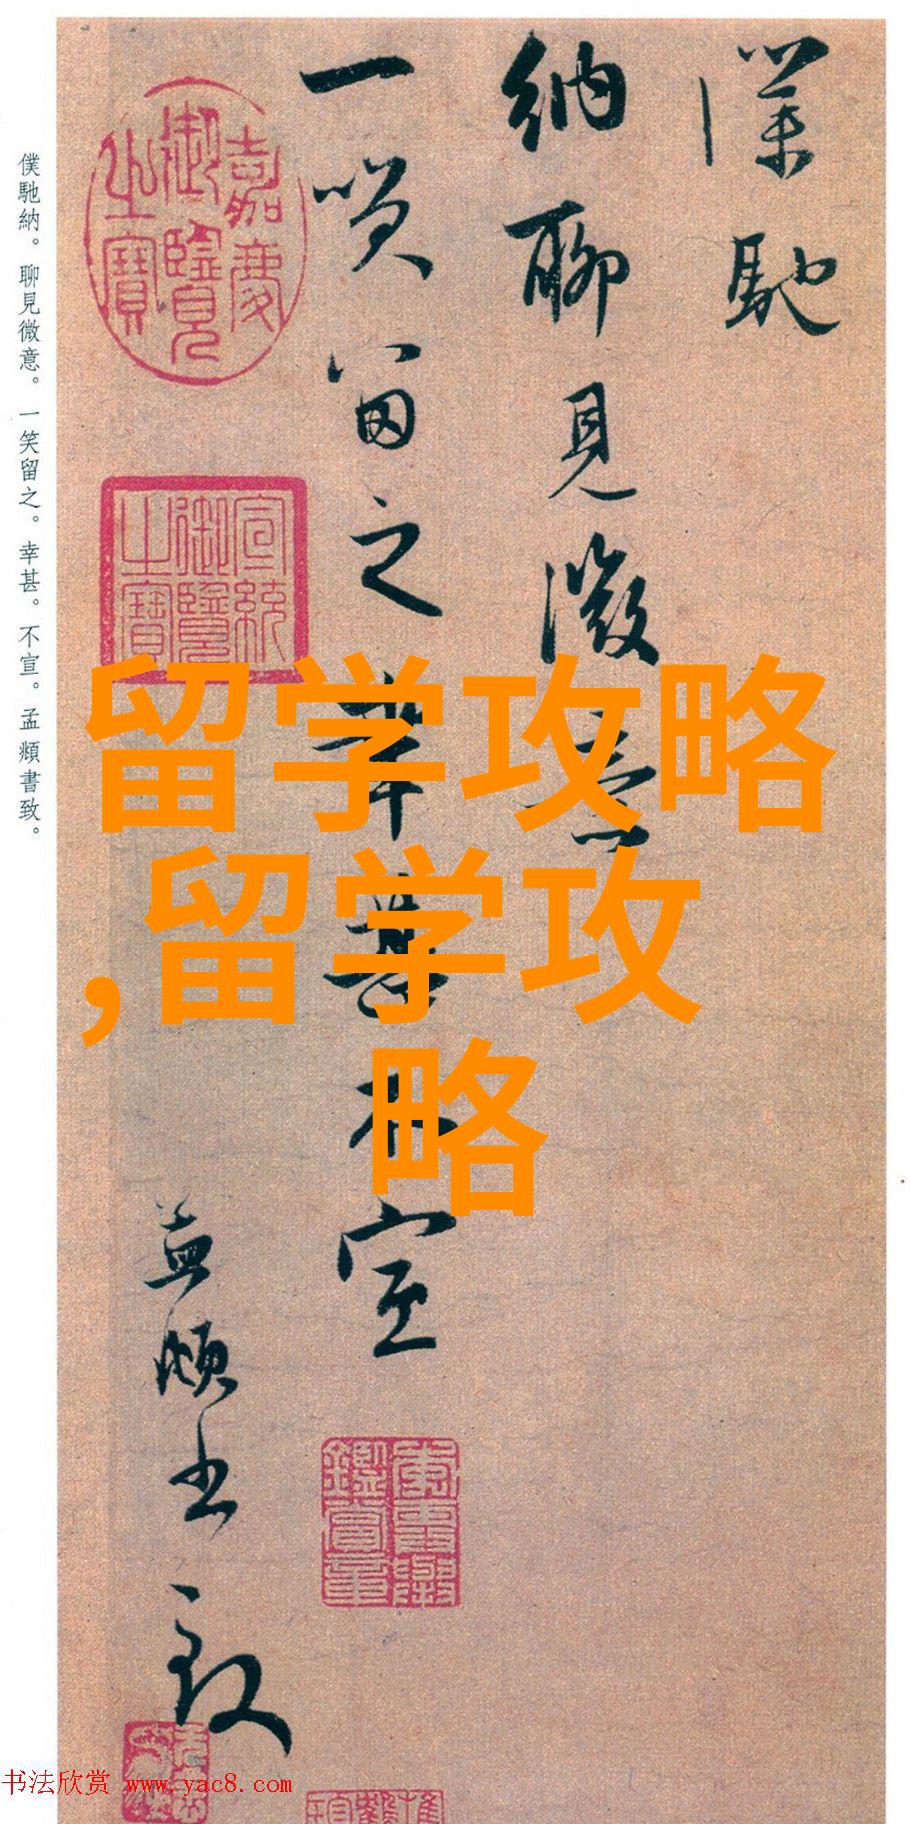 僕馳
納聊見微意
一笑留之幸甚不宣
孟頫書致
僕馳納。聊見微意。一笑留之。幸甚。不宣。孟頫書致。
嘉慶御覽之寶
宣統御覽之寶
留学攻略
,留学攻
略
书法欣赏 www.yac8.com